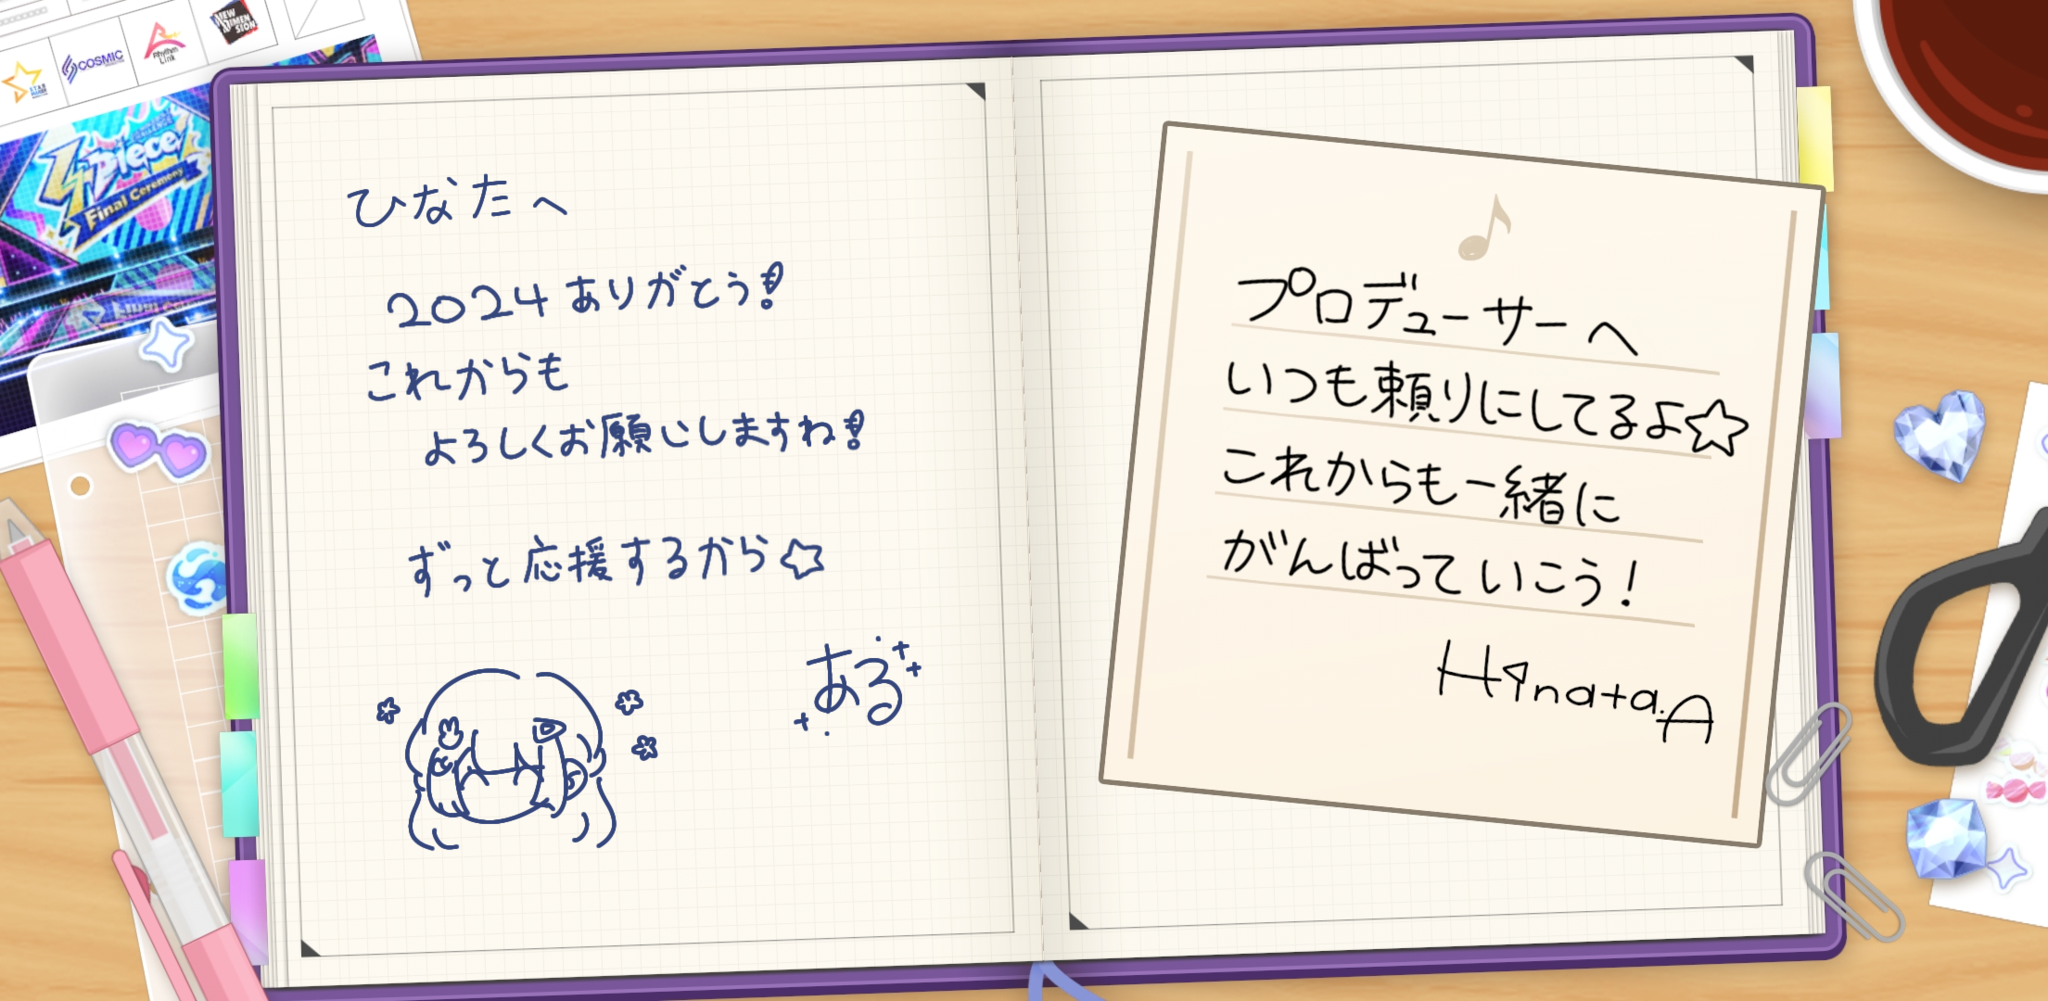 NEW DIMENSION
Rhythm Link
COSMIC
STAR
4Piece
Final Ceremony
ひなたへ
2024ありがとう!
これからも
よろしくお願いしますね!
ずっと応援するから☆
ある
プロデューサーへ
いつも頼りにしてるよ☆
これからも一緒に
がんばっていこう!
Hinata.A